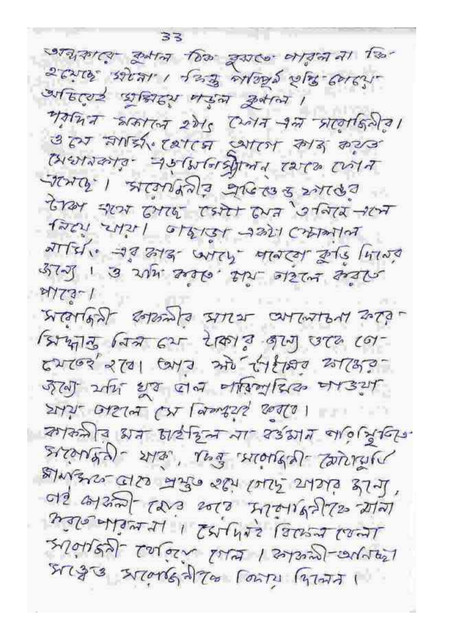 33
অন্ধকারে কুণাল ঠিক বুঝতে পারল না কি
হয়েছে ঘটনা । কিন্তু পরিপূর্ণ তৃপ্তি পেয়ে
অচিরেই ঘুমিয়ে পড়ল কুণাল ।
পরদিন সকালে হঠাৎ ফোন এল সরোজিনীর ।
ও যে নার্সিং হোমে আগে কাজ করত
সেখানকার এডমিনিস্ট্রেশন থেকে ফোন
এসেছে । সরোজিনীর প্রভিডেন্ড ফান্ডের
টাকা এসে গেছে সেটা যেন ও নিজে এসে
নিয়ে যায় । তাছাড়া একটা স্পেশাল
নার্সিং এর কাজ আছে পনেরো কুড়ি দিনের
জন্যে । ও যদি করতে চায় তাহলে করতে
পারে ।
সরোজিনী কাকলীর সাথে আলোচনা করে
সিদ্ধান্ত নিল যে টাকার জন্যে ওকে তো
যেতেই হবে । আর পার্ট টাইমের কাজের
জন্যে যদি খুব ভাল পারিশ্রমিক পাওয়া
যায় তাহলে সে নিশ্চয়ই করবে ।
কাকলীর মন চাইছিল না বর্তমান পরিস্থিতিতে
সরোজিনী যাক, কিন্তু সরোজিনী মোটামুটি
মানসিক ভাবে প্রস্তুত হয়ে গেছে যাবার জন্যে,
তাই কাকলী জোর করে সরোজিনীকে মানা
করতে পারল না । সেদিনই বিকেল বেলা
সরোজিনী বেরিয়ে গেল । কাকলী অনিচ্ছা
সত্ত্বেও সরোজিনীকে বিদায় দিলেন ।